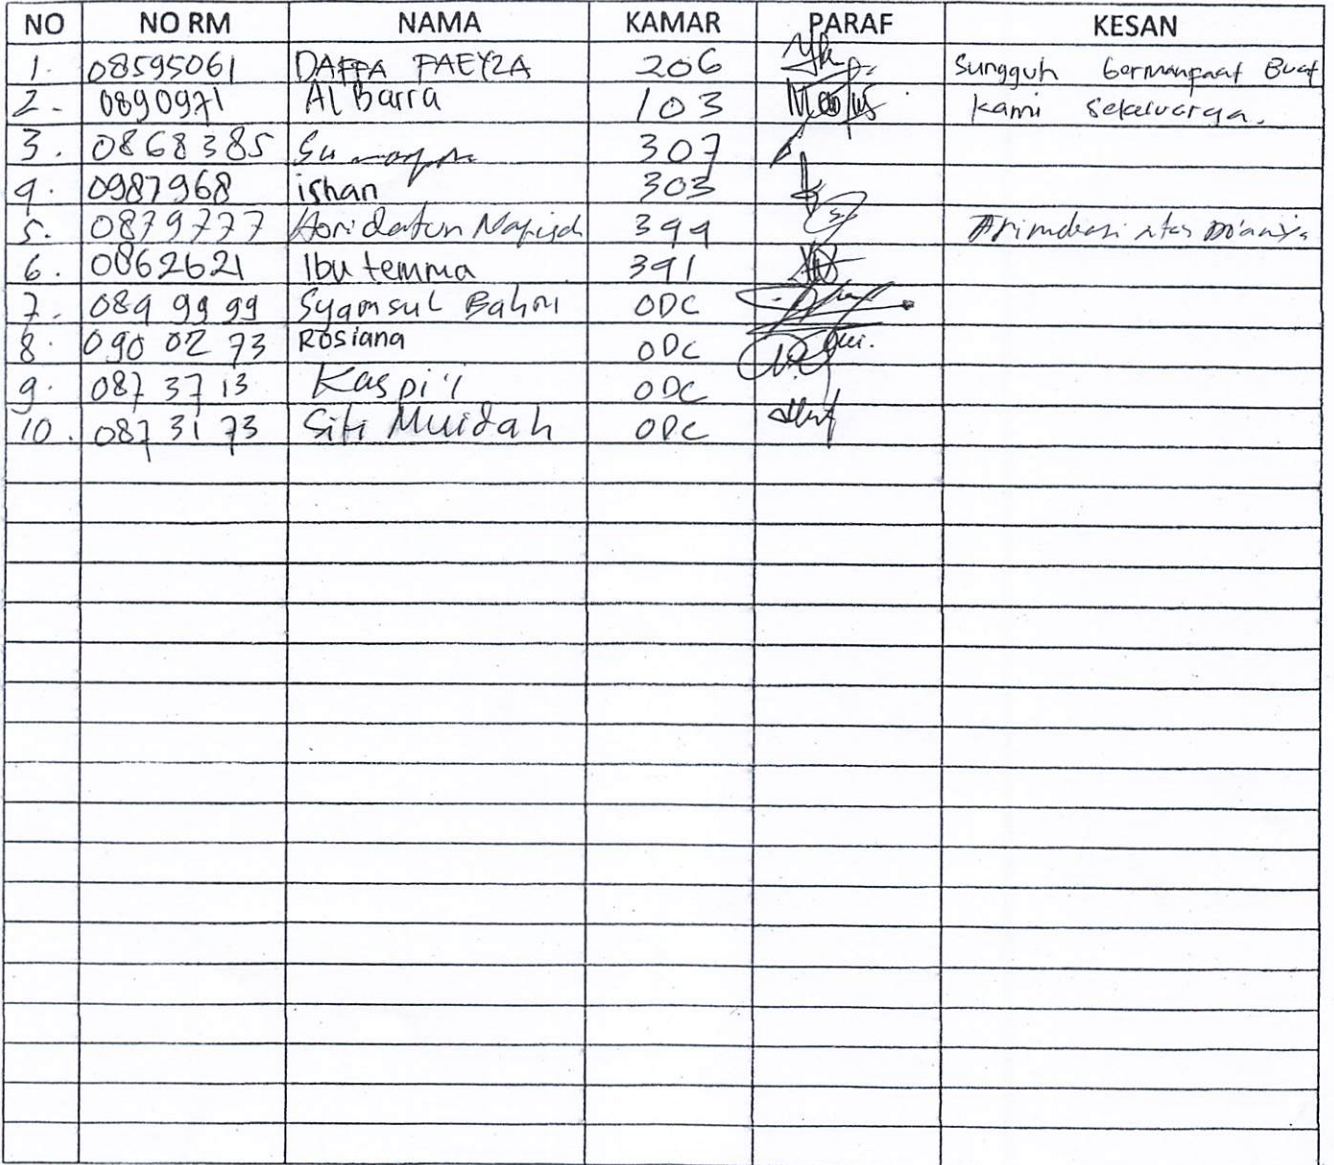 NO NO RM NAMA KAMAR PARAF KESAN
1. 08595061 DAFFA FAEYZA 206 Sungguh bermanpaat Buat
2- 0890971 Al Barra 103 kami sekeluarga.
3. 0868385 307
4. 0987968 ishan 303
5. 0879777 394
6. 0862621 Ibu temma 391
7. 089 99 99 Syamsul Bahri ODC
8. 090 02 73 Rosiana ODC
9. 087 37 13 Kaspi'i ODC
10. 087 31 73 Siti Muidah ODC